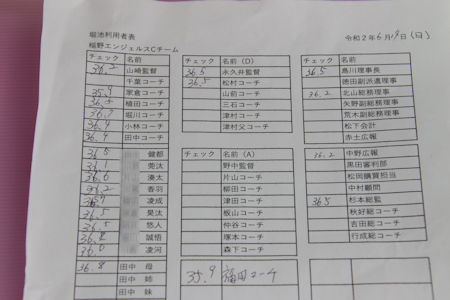 堀池利用者表
稲野エンジェルスCチーム
令和2年6月19日(日)
チェック 名前
36.2 山崎監督
千葉コーチ
35.9 家倉コーチ
36.5 植田コーチ
堀川コーチ
36.4 小林コーチ
36.4 田中コーチ
36.5 健都
36.1 兜太
36.6 湊太
36.2 香羽
凌成
36.5 昊太
36.5 悠人
36.8 誠悟
36.0 凌河
36.8 田中 母
田中 姉
田中 妹
チェック 名前(D)
36.5 永久井監督
36.5 松村コーチ
山前コーチ
三石コーチ
津村コーチ
津村父コーチ
チェック 名前(A)
野中監督
片山コーチ
柳田コーチ
津田コーチ
板山コーチ
仲谷コーチ
塚本コーチ
森下コーチ
35.9 福田コーチ
チェック 名前
36.5 島川理事長
徳田副派遣理事
36.2 北山総務理事
矢野副総務理事
荒木副総務理事
松下会計
赤土広報
36.2 中野広報
黒田審判部
松岡購買担当
中村顧問
36.5 杉本総監
秋好総コーチ
吉田総コーチ
行成総コーチ